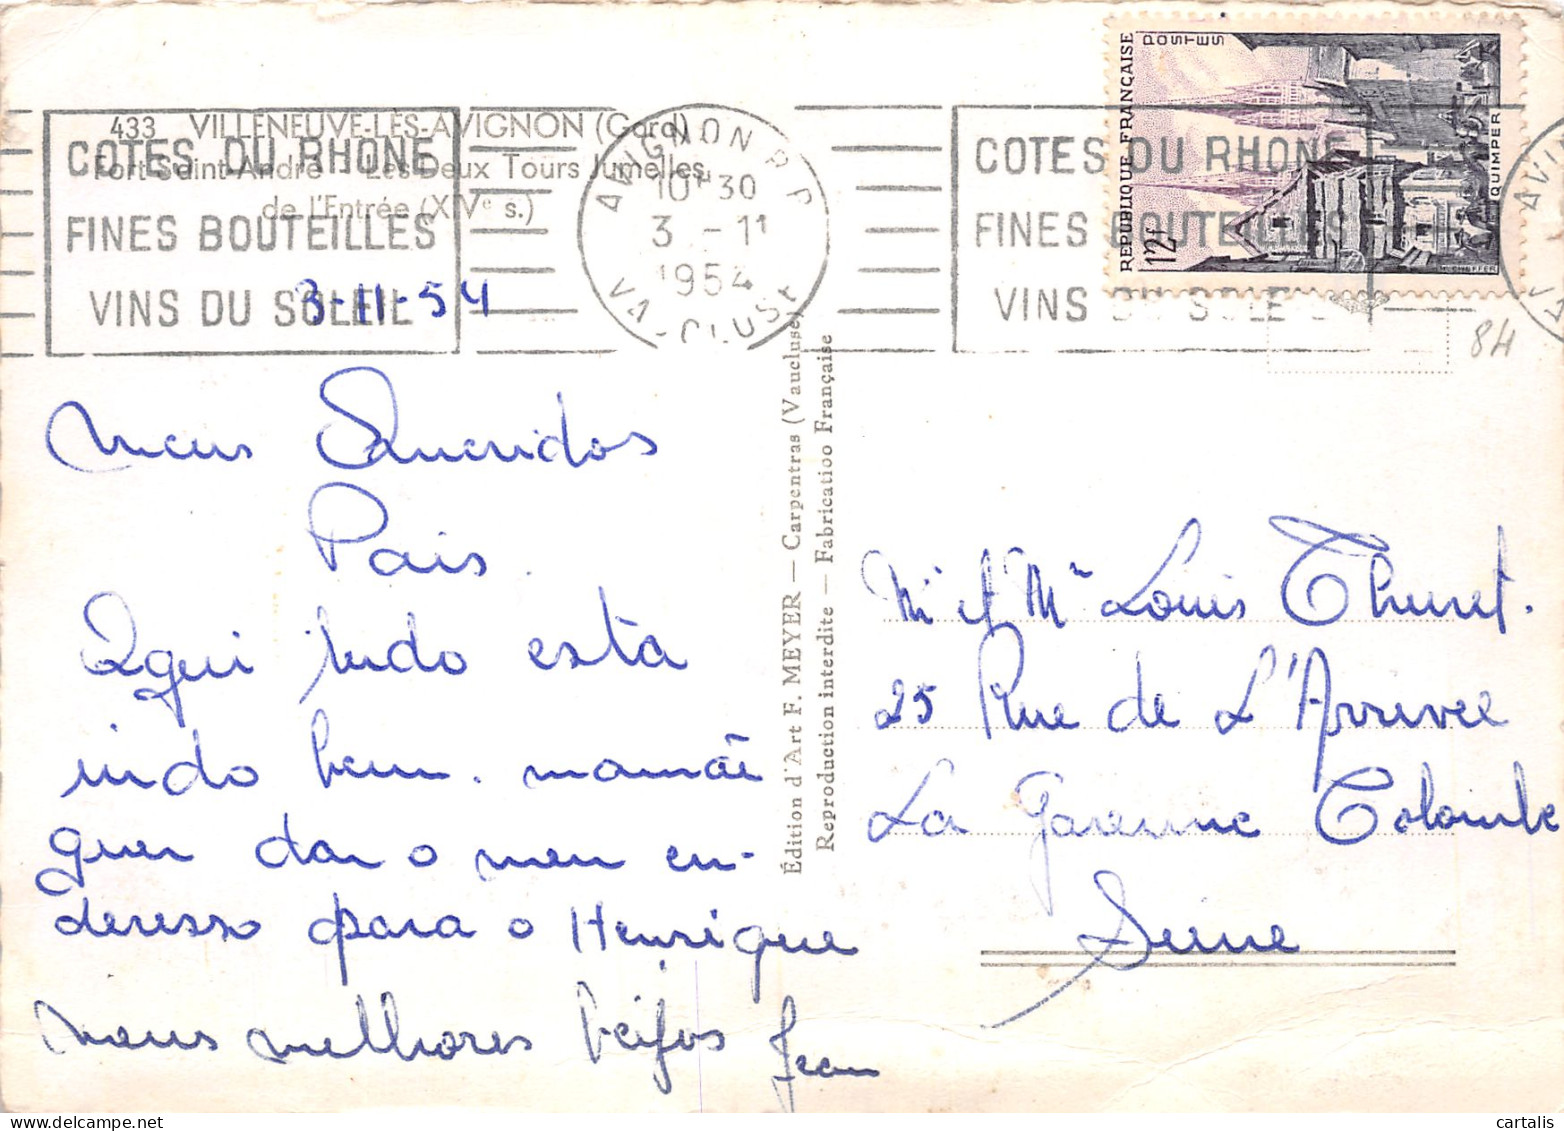 433 VILLENEUVE-LES-AVIGNON (Gard)
Fort Saint-André - Les Deux Tours Jumelles,
de l'Entrée (XIVe s.)
COTES DU RHONE
FINES BOUTEILLES
VINS DU SOLEIL
AVIGNON R P
10H30
3 - 11
1954
VAUCLUSE
COTES DU RHONE
FINES BOUTEILLES
VINS DU SOLEIL
REPUBLIQUE FRANÇAISE
POSTES
12f
QUIMPER
84
3-11-54
Meus Queridos
Pais.
Aqui tudo esta
indo bem. mamãe
quer dar o meu en-
deresso para o Henrique
meus melhores beijos Jean
Édition d'Art F. MEYER — Carpentras (Vaucluse)
Reproduction interdite — Fabrication Française
Mr et Mme Louis Thuret.
25 Rue de L'Arrivée
La Garenne Colombe
Seine
cartalis